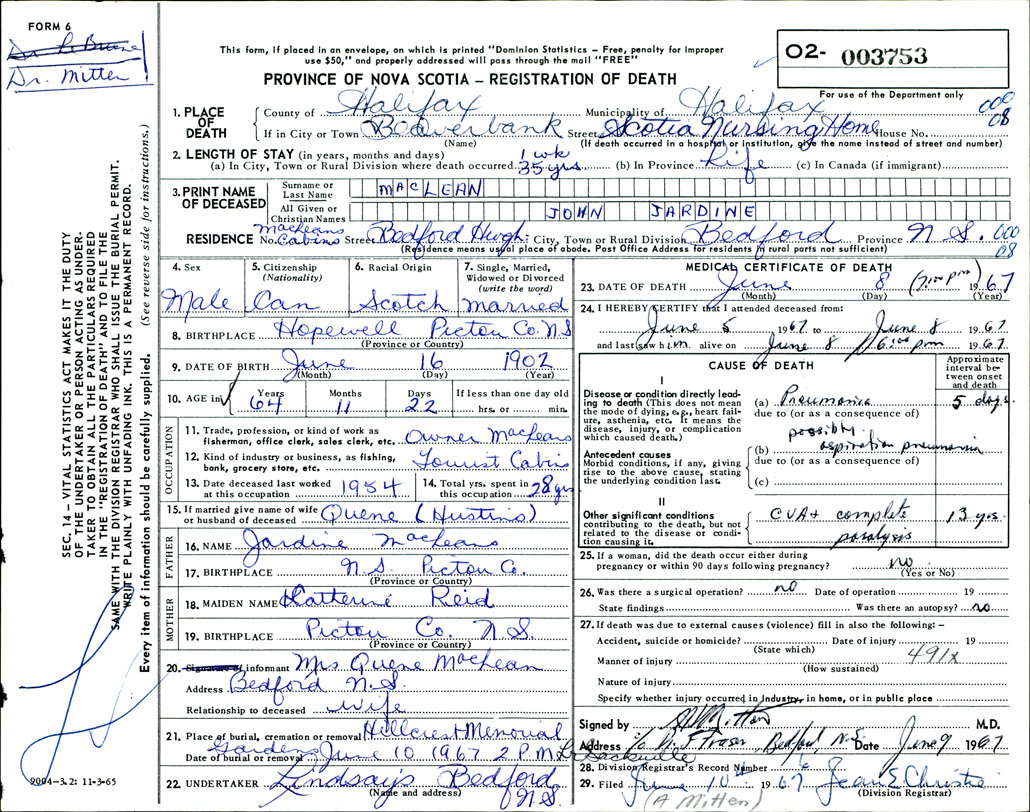 FORM 6
Dr. Mitten
This form, if placed in an envelope, on which is printed "Dominion Statistics – Free, penalty for improper
use $50," and properly addressed will pass through the mail "FREE"
O2- 003753
For use of the Department only
PROVINCE OF NOVA SCOTIA – REGISTRATION OF DEATH
000
08
1. PLACE OF DEATH
County of Halifax Municipality of Halifax
If in City or Town Beaverbank Street Scotia Nursing Home House No.
(Name) (If death occurred in a hospital or institution, give the name instead of street and number)
2. LENGTH OF STAY (in years, months and days)
1 wk
(a) In City, Town or Rural Division where death occurred. 35 yrs. (b) In Province Life (c) In Canada (if immigrant)
3. PRINT NAME OF DECEASED
Surname or Last Name MACLEAN
All Given or Christian Names JOHN JARDINE
RESIDENCE No. MacLeans Cabins Street Bedford Hwgh. City, Town or Rural Division Bedford Province N.S. 000
08
(Residence means usual place of abode. Post Office Address for residents in rural parts not sufficient)
4. Sex
Male
5. Citizenship
(Nationality)
Can
6. Racial Origin
Scotch
7. Single, Married,
Widowed or Divorced
(write the word)
married
8. BIRTHPLACE Hopewell Pictou Co. N.S
(Province or Country)
9. DATE OF BIRTH June 16 1902
(Month) (Day) (Year)
10. AGE in
Years Months Days If less than one day old
64 11 22 hrs. or min.
OCCUPATION
11. Trade, profession, or kind of work as
fisherman, office clerk, sales clerk, etc. Owner MacLeans
12. Kind of industry or business, as fishing,
bank, grocery store, etc. Tourist Cabins
13. Date deceased last worked
at this occupation 1954
14. Total yrs. spent in
this occupation 28 yrs
15. If married give name of wife
or husband of deceased Quene (Hustins)
FATHER
16. NAME Jardine MacLeans
17. BIRTHPLACE N.S. Pictou Co.
(Province or Country)
MOTHER
18. MAIDEN NAME Katherine Reid
19. BIRTHPLACE Pictou Co. N.S.
(Province or Country)
20. Signature of informant Mrs Quene MacLean
Address Bedford N.S.
Relationship to deceased Wife
21. Place of burial, cremation or removal Hillcrest Memorial
Gardens
Date of burial or removal June 10 1967 2 P.M. Lr Sackville
22. UNDERTAKER Lindsay's Bedford
(Name and address) N.S.
MEDICAL CERTIFICATE OF DEATH
23. DATE OF DEATH June 8 (7:10 pm) 1967
(Month) (Day) (Year)
24. I HEREBY CERTIFY that I attended deceased from:
June 5 1967 to June 8 1967
and last saw him alive on June 8 / 6:00 pm 1967.
CAUSE OF DEATH
Approximate
interval be-
tween onset
and death
I
Disease or condition directly lead-
ing to death (This does not mean
the mode of dying, e.g., heart fail-
ure, asthenia, etc. It means the
disease, injury, or complication
which caused death.)
(a) Pneumonia 5 days
due to (or as a consequence of)
possibly
Antecedent causes
Morbid conditions, if any, giving
rise to the above cause, stating
the underlying condition last.
(b) aspiration pneumonia
due to (or as a consequence of)
(c)
II
Other significant conditions
contributing to the death, but not
related to the disease or condi-
tion causing it.
CVA + complete 13 yrs.
paralysis
25. If a woman, did the death occur either during
pregnancy or within 90 days following pregnancy? no
(Yes or No)
26. Was there a surgical operation? no Date of operation 19
State findings Was there an autopsy? no
27. If death was due to external causes (violence) fill in also the following: –
Accident, suicide or homicide? Date of injury 19
(State which)
491x
Manner of injury
(How sustained)
Nature of injury
Specify whether injury occurred in industry, in home, or in public place
Signed by A Mitten M.D.
Address c/o W. J. Fraser, Bedford, N.S. Date June 9 1967
28. Division Registrar's Record Number
29. Filed June 10th 1967 Jean E. Christie
(Division Registrar)
(A Mitten)
SEC. 14 – VITAL STATISTICS ACT MAKES IT THE DUTY
OF THE UNDERTAKER OR PERSON ACTING AS UNDER-
TAKER TO OBTAIN ALL THE PARTICULARS REQUIRED
IN THE "REGISTRATION OF DEATH" AND TO FILE THE
SAME WITH THE DIVISION REGISTRAR WHO SHALL ISSUE THE BURIAL PERMIT.
WRITE PLAINLY WITH UNFADING INK. THIS IS A PERMANENT RECORD.
Every item of information should be carefully supplied. (See reverse side for instructions.)
9004-3.2: 11-3-65